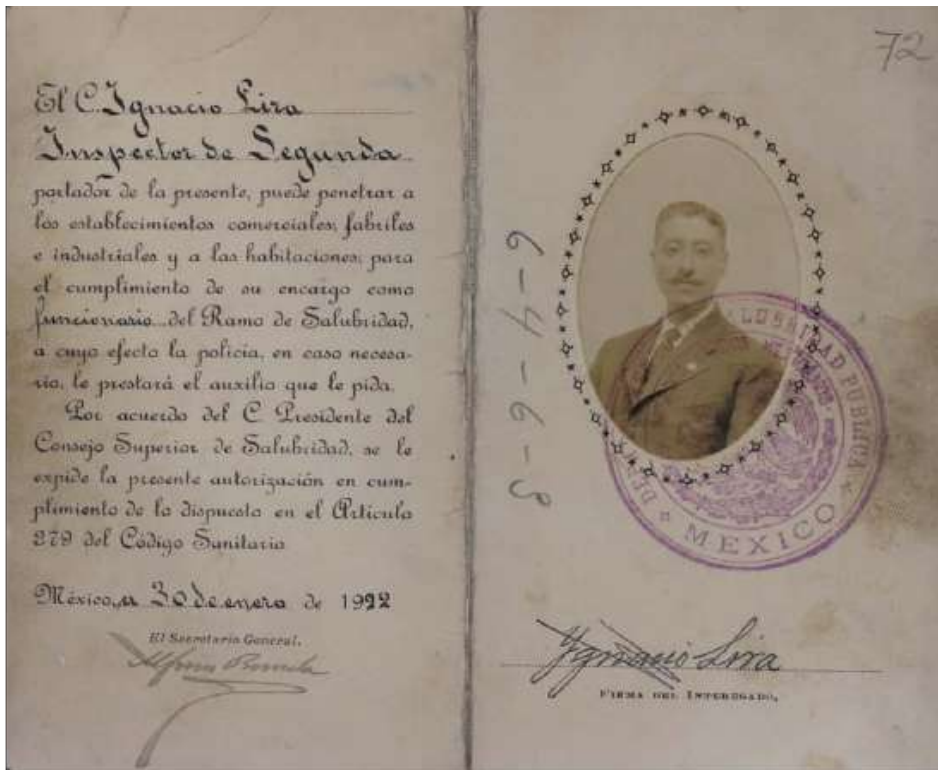 El C. Ignacio Lira
Inspector de Segunda
portador de la presente, puede penetrar a
los establecimientos comerciales, fabriles
e industriales y a las habitaciones, para
el cumplimiento de su encargo como
funcionario del Ramo de Salubridad,
a cuyo efecto la policía, en caso necesa-
rio, le prestará el auxilio que le pida.
Por acuerdo del C. Presidente del
Consejo Superior de Salubridad, se le
expide la presente autorización en cum-
plimiento de lo dispuesto en el Artículo
279 del Código Sanitario.
México, a 30 de enero de 1922
El Secretario General.
72
6-4-6-8
SALUBRIDAD PUBLICA
MEXICO
Ygnacio Lira
FIRMA DEL INTERESADO,